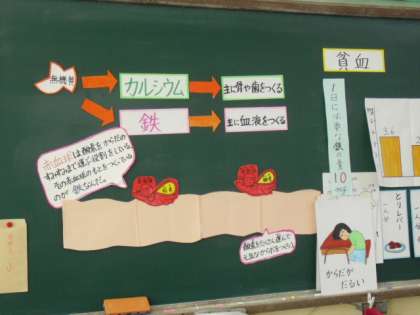 無機質
カルシウム
主に骨や歯をつくる
鉄
主に血液をつくる
貧血
1日に必要な鉄の量
10
赤血球は酸素をからだの
すみずみまで運ぶ役割をしている
その赤血球のもとをつくっている
のが鉄なんだ。
酸素をたくさん運んで
元気なからだをつくろう
からだが
だるい
とりレバー